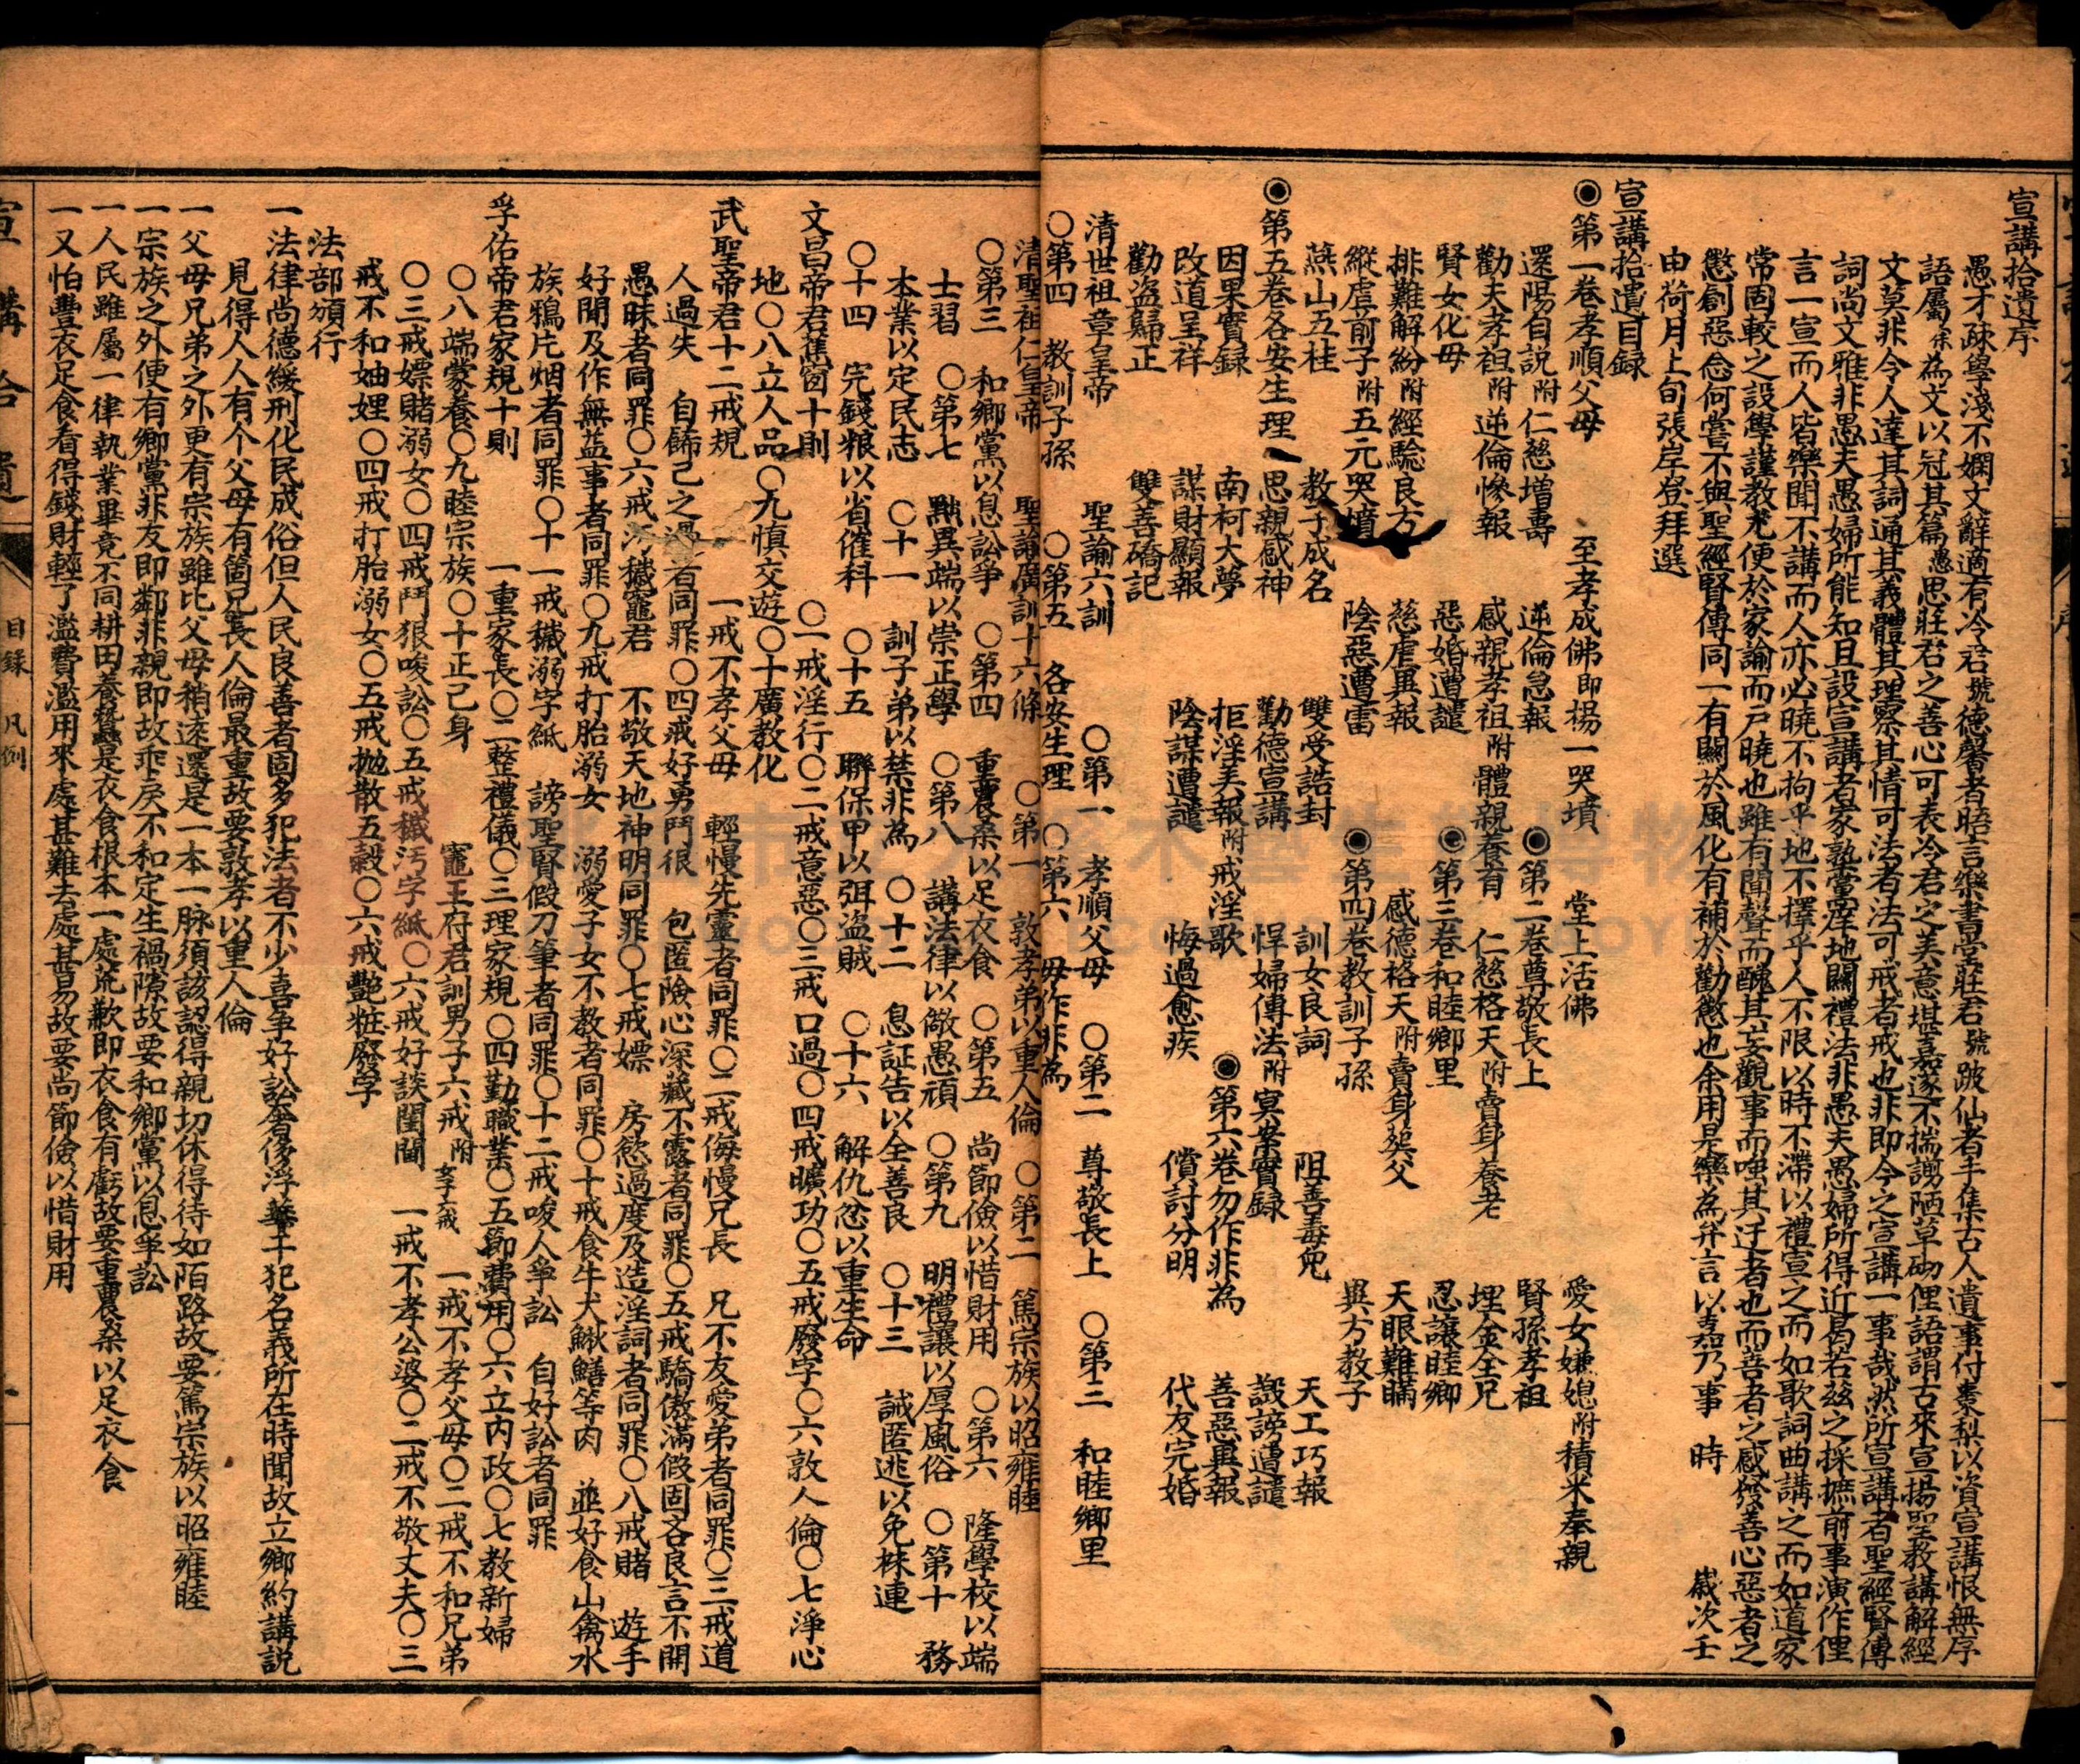 宣講拾遺序
愚才疎學淺不嫻文辭適有冷君號德馨者晤言樂書堂莊君號跛仙者手集古人遺事付棗梨以資宣講恨無序
語屬余為文以冠其篇愚思莊君之善心可表冷君之美意堪嘉遂不揣謭陋草砌俚語謂古來宣揚聖教講解經
文莫非令人達其詞通其義體其理察其情可法者法可戒者戒也非即今之宣講一事哉然所宣講者聖經賢傳
詞尚文雅非愚夫愚婦所能知且設宣講者家塾黨庠地關禮法非愚夫愚婦所得近曷若茲之採摭前事演作俚
言一宣而人皆樂聞不講而人亦必曉不拘乎地不擇乎人不限以時不滯以禮宣之而如歌詞曲講之而如道家
常固較之設學謹教尤便於家諭而戶曉也雖有聞聲而醜其妄觀事而嗤其迂者也而善者之感發善心惡者之
懲創惡念何嘗不與聖經賢傳同一有關於風化有補於勸懲也余用是樂為弁言以勷乃事　時　歲次壬
由荷月上旬張岸登拜選
宣講拾遺目錄
◉第一卷孝順父母　至孝成佛即楊一哭墳　堂上活佛　愛女嫌媳附積米奉親
還陽自說附仁慈增壽　逆倫急報　◉第二卷尊敬長上　賢孫孝祖
勸夫孝祖附逆倫慘報　感親孝祖附體親養育　仁慈格天附賣身養老　埋金全兄
賢女化母　惡婚遭譴　◉第三卷和睦鄉里　忍讓睦鄉
排難解紛附經驗良方　慈虐異報　感德格天附賣身葬父　天眼難瞞
縱虐前子附五元哭墳　陰惡遭雷　◉第四卷教訓子孫　異方教子
燕山五桂　教子成名　雙受誥封　訓女良詞　阻善毒兒　天工巧報
◉第五卷各安生理　思親感神　勸德宣講　悍婦傳法附冥案實錄　謗譭遭譴
因果實錄　南柯大夢　拒淫美報附戒淫歌　◉第六卷勿作非為　善惡異報
改道呈祥　謀財顯報　陰謀遭譴　悔過愈疾　償討分明　代友完婚
勸盜歸正　雙善橋記
清世祖章皇帝　聖諭六訓　〇第一　孝順父母　〇第二　尊敬長上　〇第三　和睦鄉里
〇第四　教訓子孫　〇第五　各安生理　〇第六　毋作非為
清聖祖仁皇帝　聖諭廣訓十六條　〇第一　敦孝弟以重人倫　〇第二　篤宗族以昭雍睦
〇第三　和鄉黨以息訟爭　〇第四　重農桑以足衣食　〇第五　尚節儉以惜財用　〇第六　隆學校以端
士習　〇第七　黜異端以崇正學　〇第八　講法律以儆愚頑　〇第九　明禮讓以厚風俗　〇第十　務
本業以定民志　〇十一　訓子弟以禁非為　〇十二　息証告以全善良　〇十三　誡匿逃以免株連
〇十四　完錢粮以省催科　〇十五　聯保甲以弭盜賊　〇十六　解仇忿以重生命
文昌帝君蕉窗十則　〇一戒淫行〇二戒意惡〇三戒口過〇四戒曠功〇五戒廢字〇六敦人倫〇七淨心
地〇八立人品〇九慎交遊〇十廣教化
武聖帝君十二戒規　一戒不孝父母　輕慢先靈者同罪〇二戒侮慢兄長　兄不友愛弟者同罪〇三戒道
人過失　自飾己之過者同罪〇四戒好勇鬥很　包匿險心深藏不露者同罪〇五戒驕傲滿假固吝良言不開
愚昧者同罪〇六戒污穢竈君　不敬天地神明同罪〇七戒嫖　房慾過度及造淫詞者同罪〇八戒賭　遊手
好閒及作無益事者同罪〇九戒打胎溺女　溺愛子女不教者同罪〇十戒食牛犬鰍鱔等肉　並好食山禽水
族鴉片烟者同罪〇十一戒穢溺字紙　謗聖賢假刀筆者同罪〇十二戒唆人爭訟　自好訟者同罪
孚佑帝君家規十則　一重家長〇二整禮儀〇三理家規〇四勤職業〇五節費用〇六立內政〇七教新婦
〇八端蒙養〇九睦宗族〇十正己身　竈王府君訓男子六戒附女子六戒　一戒不孝父母〇二戒不和兄弟
〇三戒嫖賭溺女〇四戒鬥狠唆訟〇五戒穢污字紙〇六戒好談閨閫　一戒不孝公婆〇二戒不敬丈夫〇三
戒不和妯娌〇四戒打胎溺女〇五戒拋散五穀〇六戒艷粧廢字
法部頒行
一法律尚德緩刑化民成俗但人民良善者固多犯法者不少喜爭好訟奢侈浮華干犯名義所在時聞故立鄉約講説
見得人人有个父母有箇兄長人倫最重故要敦孝以重人倫
一父母兄弟之外更有宗族雖比父母稍遠還是一本一脉須該認得親切休得待如陌路故要篤宗族以昭雍睦
一宗族之外便有鄉黨非友即鄰非親即故乖戾不和定生禍隙故要和鄉黨以息爭訟
一人民雖屬一律執業畢竟不同耕田養蠶是衣食根本一處荒歉即衣食有虧故要重農桑以足衣食
一又怕豐衣足食看得錢財輕了濫費濫用來處甚難去處甚易故要尚節儉以惜財用
宣講拾遺　目錄　凡例